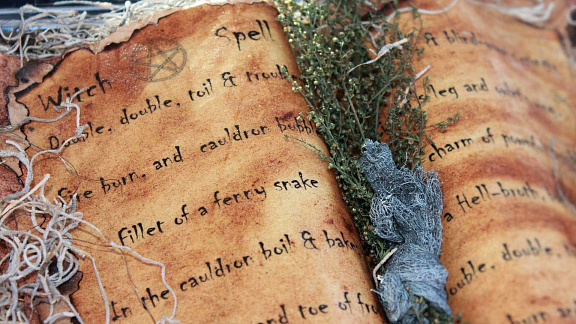 Witch Spell
Double, double, toil & troubl
Fire burn, and cauldron bubbl
fillet of a fenny snake
In the cauldron boil & bak
and toe of fr
& blind
leg and
charm of
a Hell-broth
double, double,